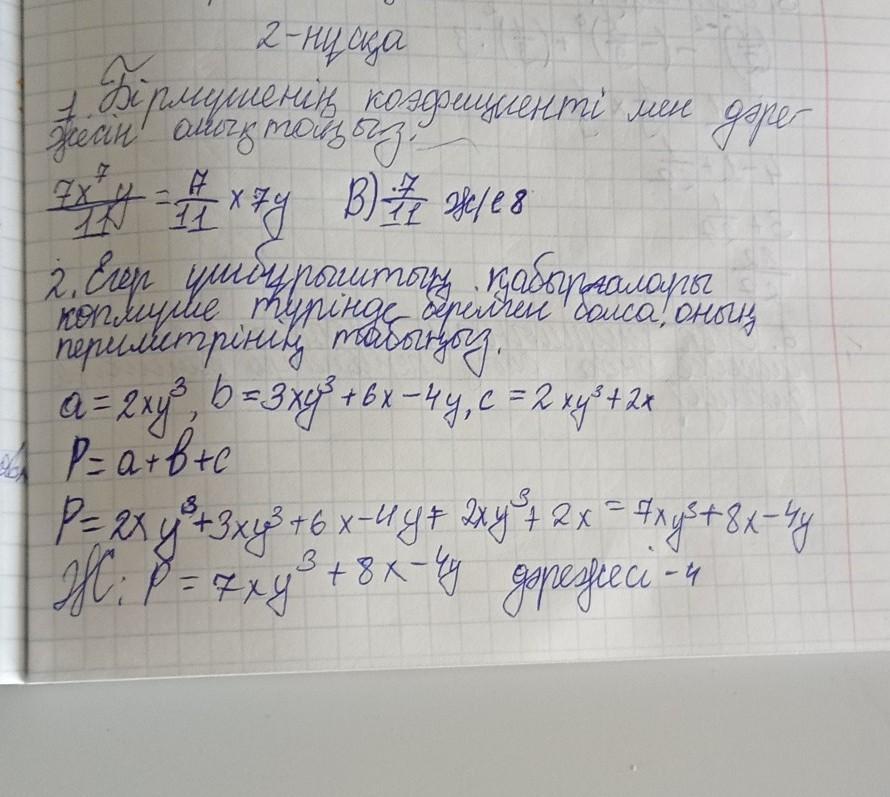 2-нұсқа
1. Бірмүшенің коэффициенті мен дәре-
жесін анықтаңыз:
7x⁷y/11 = 7/11 x 7y B) 7/11 және 8
2. Егер үшбұрыштың қабырғалары
көпмүше түрінде берілген болса, оның
периметрінің табыңыз.
a = 2xy³, b = 3xy³ + 6x - 4y, c = 2xy³ + 2x
P = a + b + c
P = 2xy³ + 3xy³ + 6x - 4y + 2xy³ + 2x = 7xy³ + 8x - 4y
Ж: P = 7xy³ + 8x - 4y дәрежесі - 4